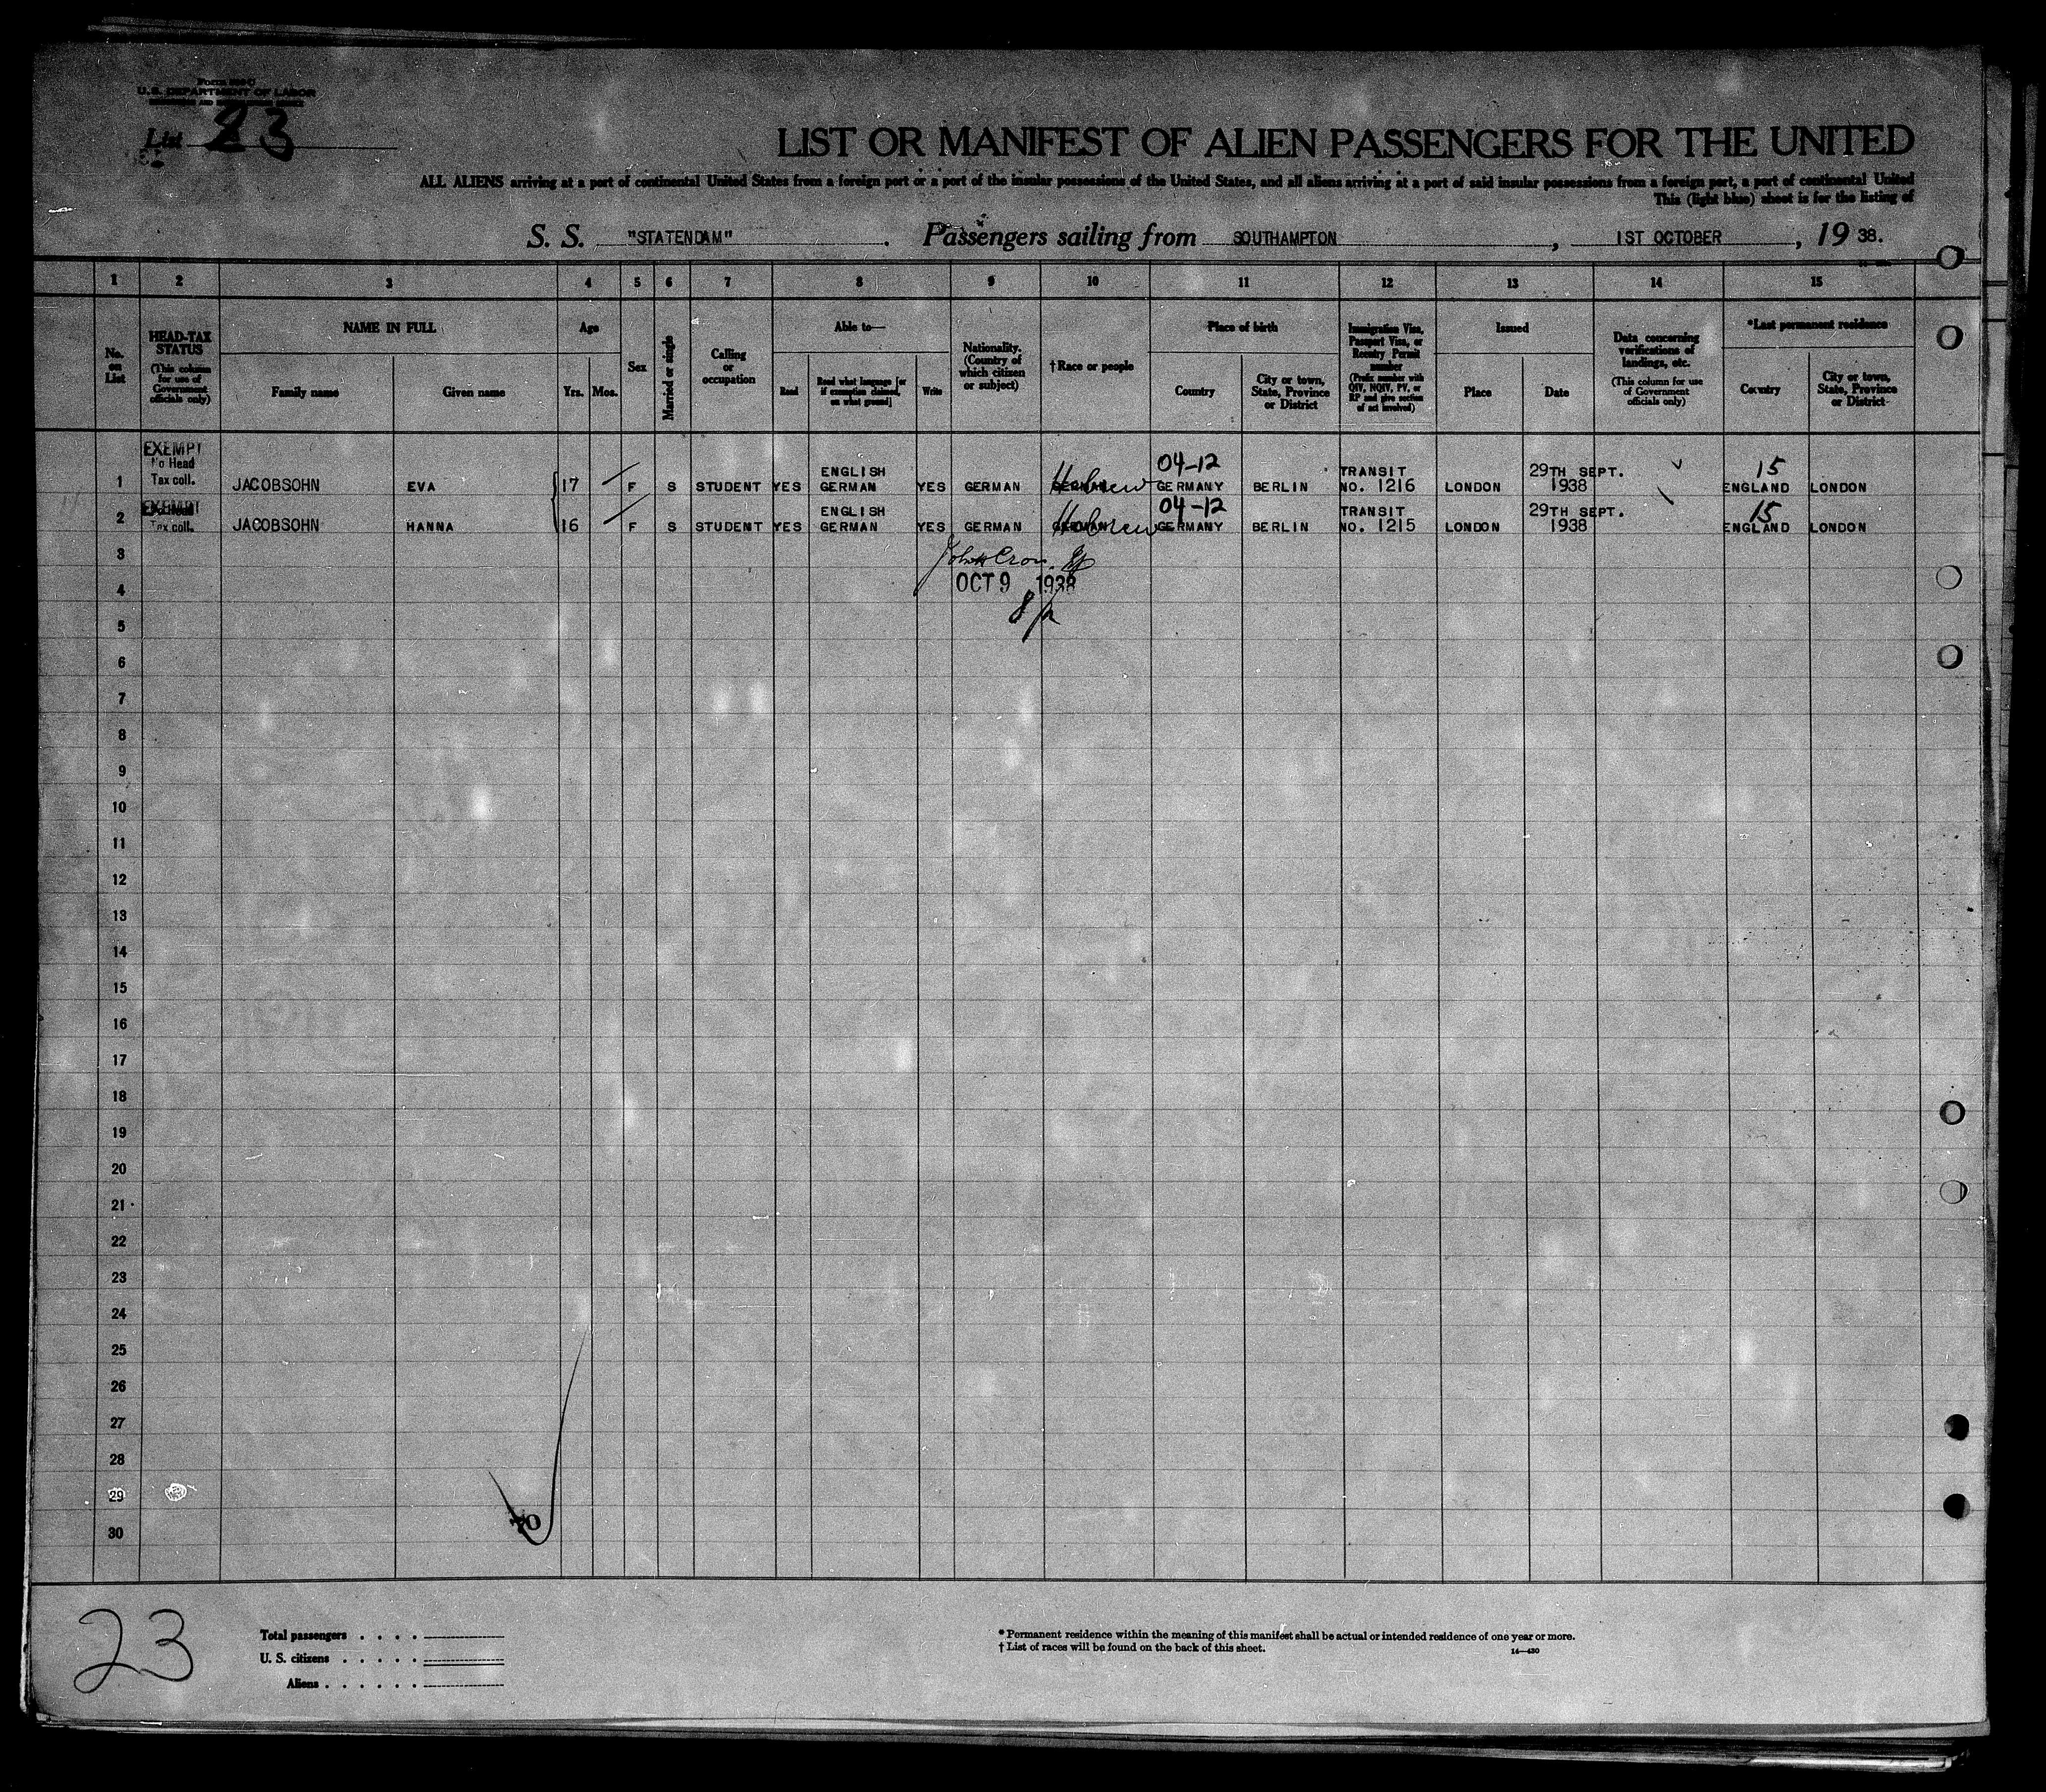 U.S. DEPARTMENT OF LABOR
List 23
LIST OR MANIFEST OF ALIEN PASSENGERS FOR THE UNITED
ALL ALIENS arriving at a port of continental United States from a foreign port or a port of the insular possessions of the United States, and all aliens arriving at a port of said insular possessions from a foreign port, a port of continental United
This (light blue) sheet is for the listing of
S. S. "STATENDAM" . Passengers sailing from SOUTHAMPTON , 1ST OCTOBER , 19 38.
1 2 3 4 5 6 7 8 9 10 11 12 13 14 15
No. on List
HEAD-TAX STATUS (This column for use of Government officials only)
NAME IN FULL
Family name Given name
Age
Yrs. Mos.
Sex
Married or single
Calling or occupation
Able to—
Read Read what language [or if exemption claimed, on what ground] Write
Nationality. (Country of which citizen or subject)
†Race or people
Place of birth
Country City or town, State, Province or District
Immigration Visa, Passport Visa, or Reentry Permit number (Prefix number with QIV, NQIV, PV, or RP and give section of act involved)
Issued
Place Date
Data concerning verifications of landings, etc. (This column for use of Government officials only)
*Last permanent residence
Country City or town, State, Province or District
EXEMPT
No Head 04-12
Tax coll. ENGLISH TRANSIT 29TH SEPT. 15
1 JACOBSOHN EVA 17 F S STUDENT YES GERMAN YES GERMAN GERMAN Hebrew GERMANY BERLIN NO. 1216 LONDON 1938 ENGLAND LONDON
EXEMPT 04-12
ENGLISH TRANSIT 29TH SEPT. 15
2 Tax coll. JACOBSOHN HANNA 16 F S STUDENT YES GERMAN YES GERMAN GERMAN Hebrew GERMANY BERLIN NO. 1215 LONDON 1938 ENGLAND LONDON
3
OCT 9 1938
4
5
6
7
8
9
10
11
12
13
14
15
16
17
18
19
20
21
22
23
24
25
26
27
28
29
30
23
Total passengers
U. S. citizens
Aliens
* Permanent residence within the meaning of this manifest shall be actual or intended residence of one year or more.
† List of races will be found on the back of this sheet.
14—430